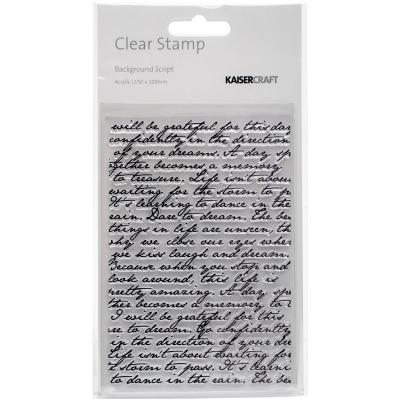 Clear Stamp
Background Script
Acrylic | 150 x 100mm
KAISERCRAFT
will be grateful for this day
confidently in the direction
of your dreams. A day sp
ogether becomes a memory
to treasure. Life isn't abou
waiting for the storm to pa
It's learning to dance in the
rain. Dare to dream. The be
things in life are unseen, th
why we close our eyes when
we kiss laugh and dream.
Because when you stop and
look around, this life is
retty amazing. A day spe
ther becomes a memory to t
I will be grateful for this
re to dream. Go confidently
in the direction of your dre
Life isn't about waiting for
e storm to pass. It's learni
to dance in the rain. The be